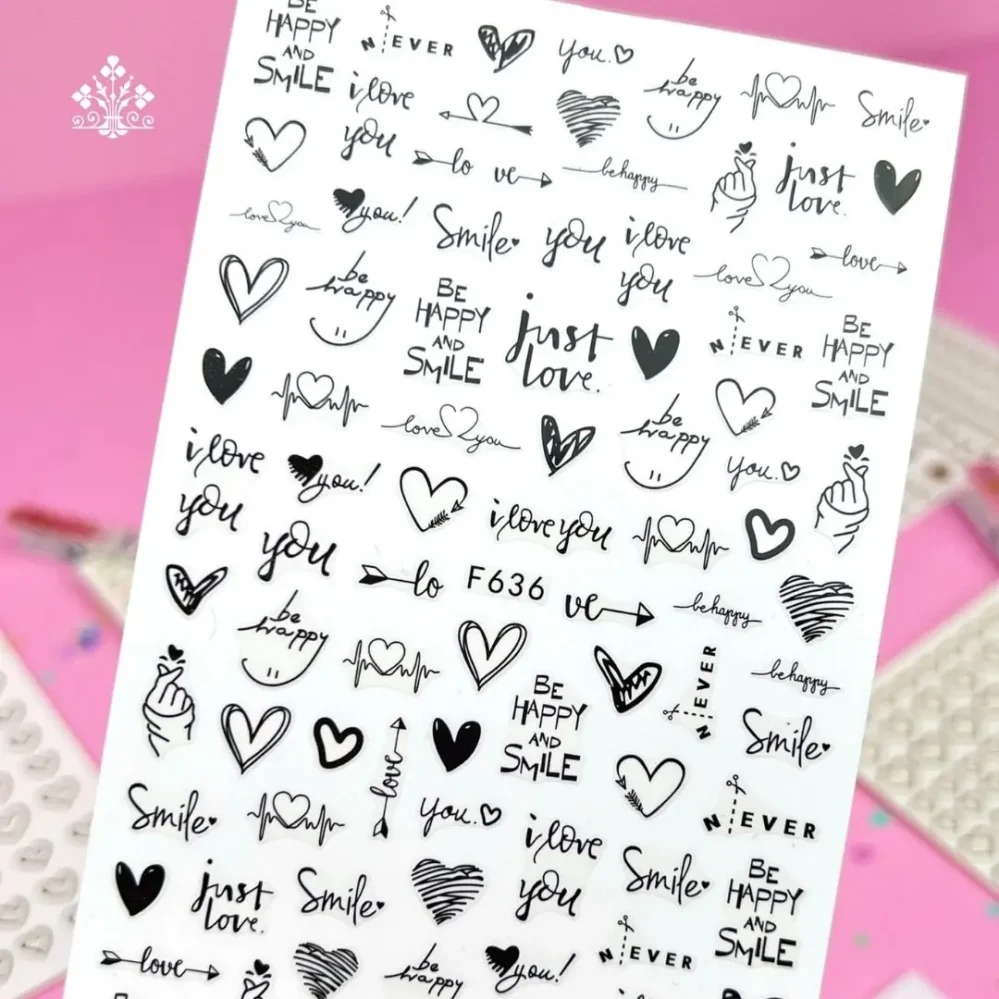 BE
HAPPY
AND
SMILE
N EVER
you.
be
happy
Smile
i love
you
lo ve
behappy
just
love.
love you
you!
Smile
you
i love
you
love you
love
be
happy
BE
HAPPY
AND
SMILE
just
love.
N EVER
BE
HAPPY
AND
SMILE
love you
be
happy
you.
i love
you
you!
i love you
you
lo
F636
ve
behappy
be
happy
N EVER
behappy
BE
HAPPY
AND
SMILE
Smile
love
you.
Smile
N EVER
i love
you
Smile
BE
HAPPY
AND
SMILE
just
love.
Smile
N EVER
love
be
happy
you!